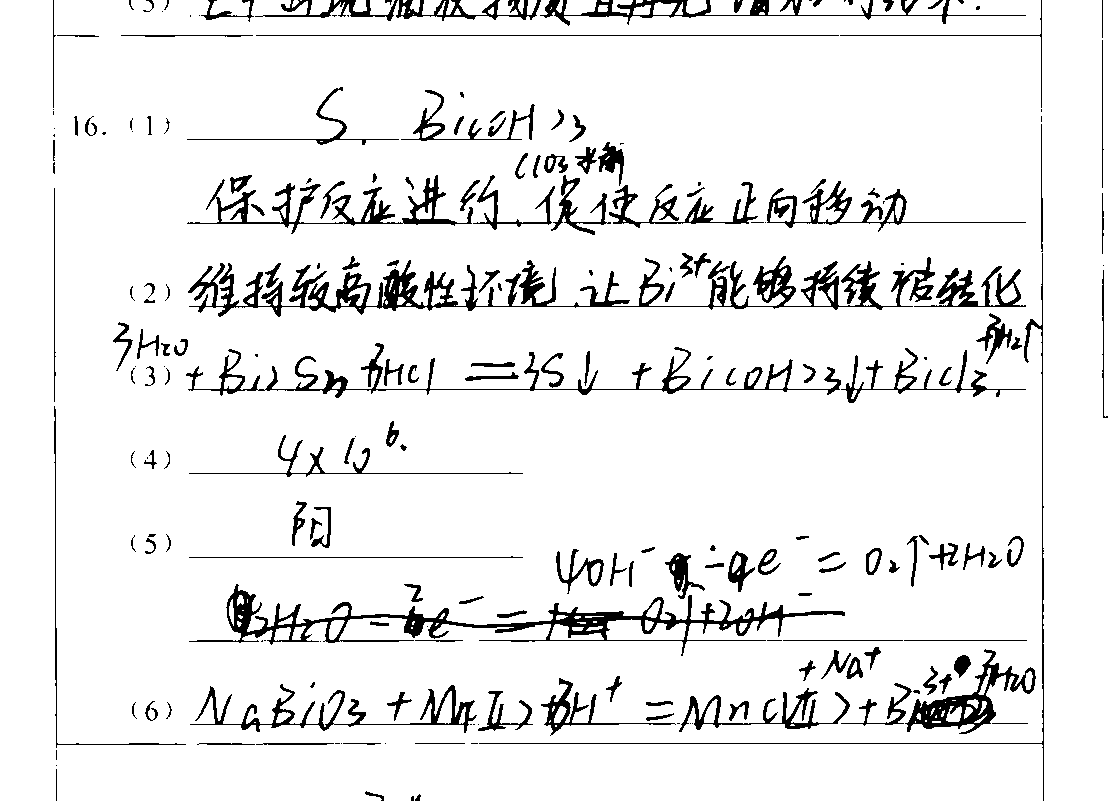 (5)
16. (1) S. Bi(OH)3
ClO3水解
保护反应进行、促使反应正向移动
(2) 维持较高酸性环境,让Bi³⁺能够持续被转化
(3) 3H2O + Bi2S3 + 3HCl = 3S↓ + Bi(OH)3↓ + BiCl3. + 3H2↑
(4) 4×10⁶.
(5) 阳
4OH⁻ - 4e⁻ = O2↑ + 2H2O
(6) NaBiO3 + Mn(Ⅱ) + 6H⁺ = Mn(Ⅶ) + Bi³⁺ + 3H2O + Na⁺